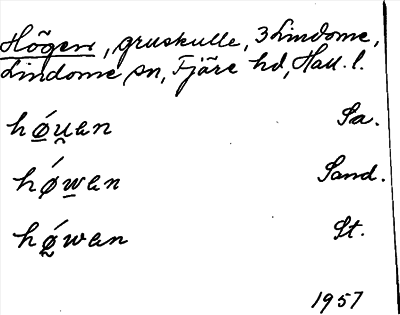 Högen, gruskulle, 3 Lindome,
Lindome sn, Fjäre hd, Hall. l.
hǿu̯an Sa.
hǿwan Sand.
hǿ̰wan St.
1957